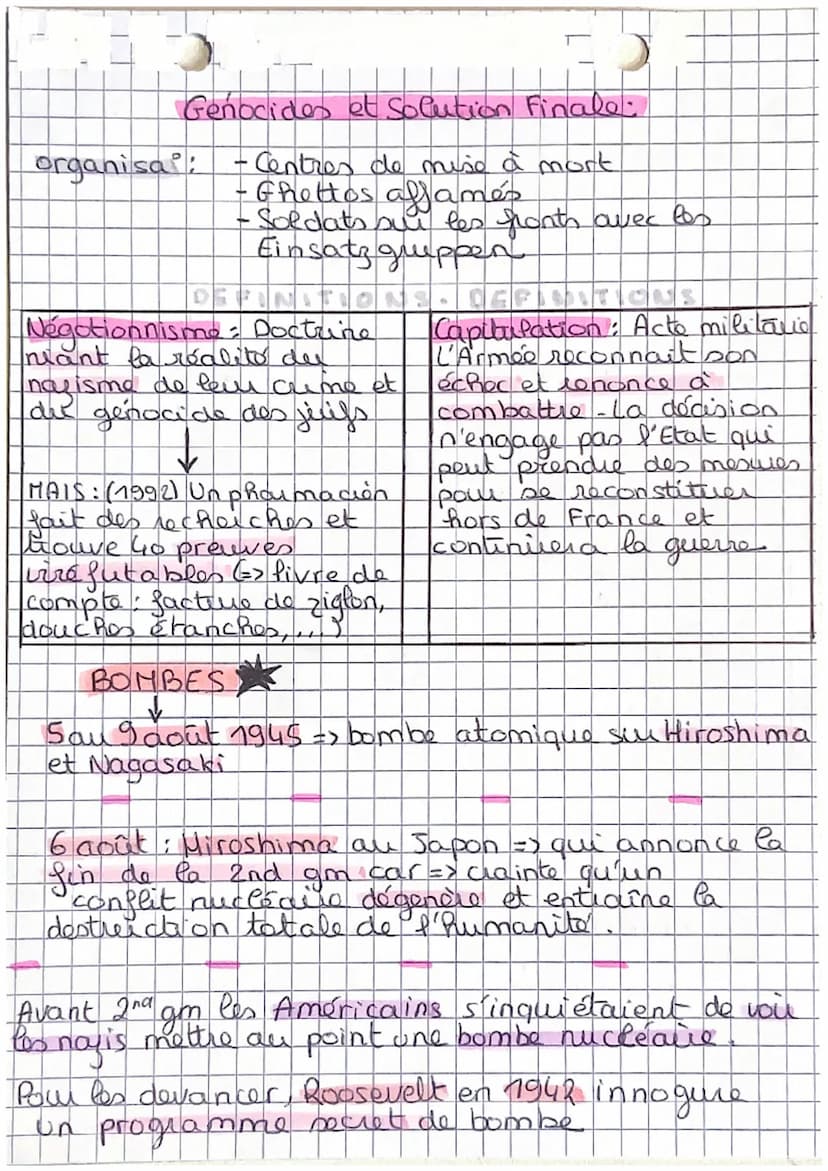 Génocides et Solution Finale:
organisa°: - Centres de mise à mort
- Ghettos affamés
- Soldats sur les fronts avec les
Einsatzgruppen
DEFINITIONS. DEFINITIONS
Négationnisme : Doctrine
niant la réalité du
nazisme de leur crime et
du génocide des juifs
↓
MAIS : (1992) Un pharmacien
fait des recherches et
trouve 40 preuves
irréfutables (=> livre de
compte : facture de ziglon,
douches étanches,...)
Capitulation : Acte militaire
L'Armée reconnait son
échec et renonce à
combattre - La décision
n'engage pas l'Etat qui
peut prendre des mesures
pour se reconstituer
hors de France et
continuera la guerre
BOMBES
↓
5 au 9 août 1945 => bombe atomique sur Hiroshima
et Nagasaki
6 août : Hiroshima au Japon => qui annonce la
fin de la 2nd gm car => crainte qu'un
conflit nucléaire dégénère et entraîne la
destruction totale de l'Humanité.
Avant 2nd gm les Américains s'inquiétaient de voir
les nazis mettre au point une bombe nucléaire.
Pour les devancer, Roosevelt en 1942 innogure
un programme secret de bombe